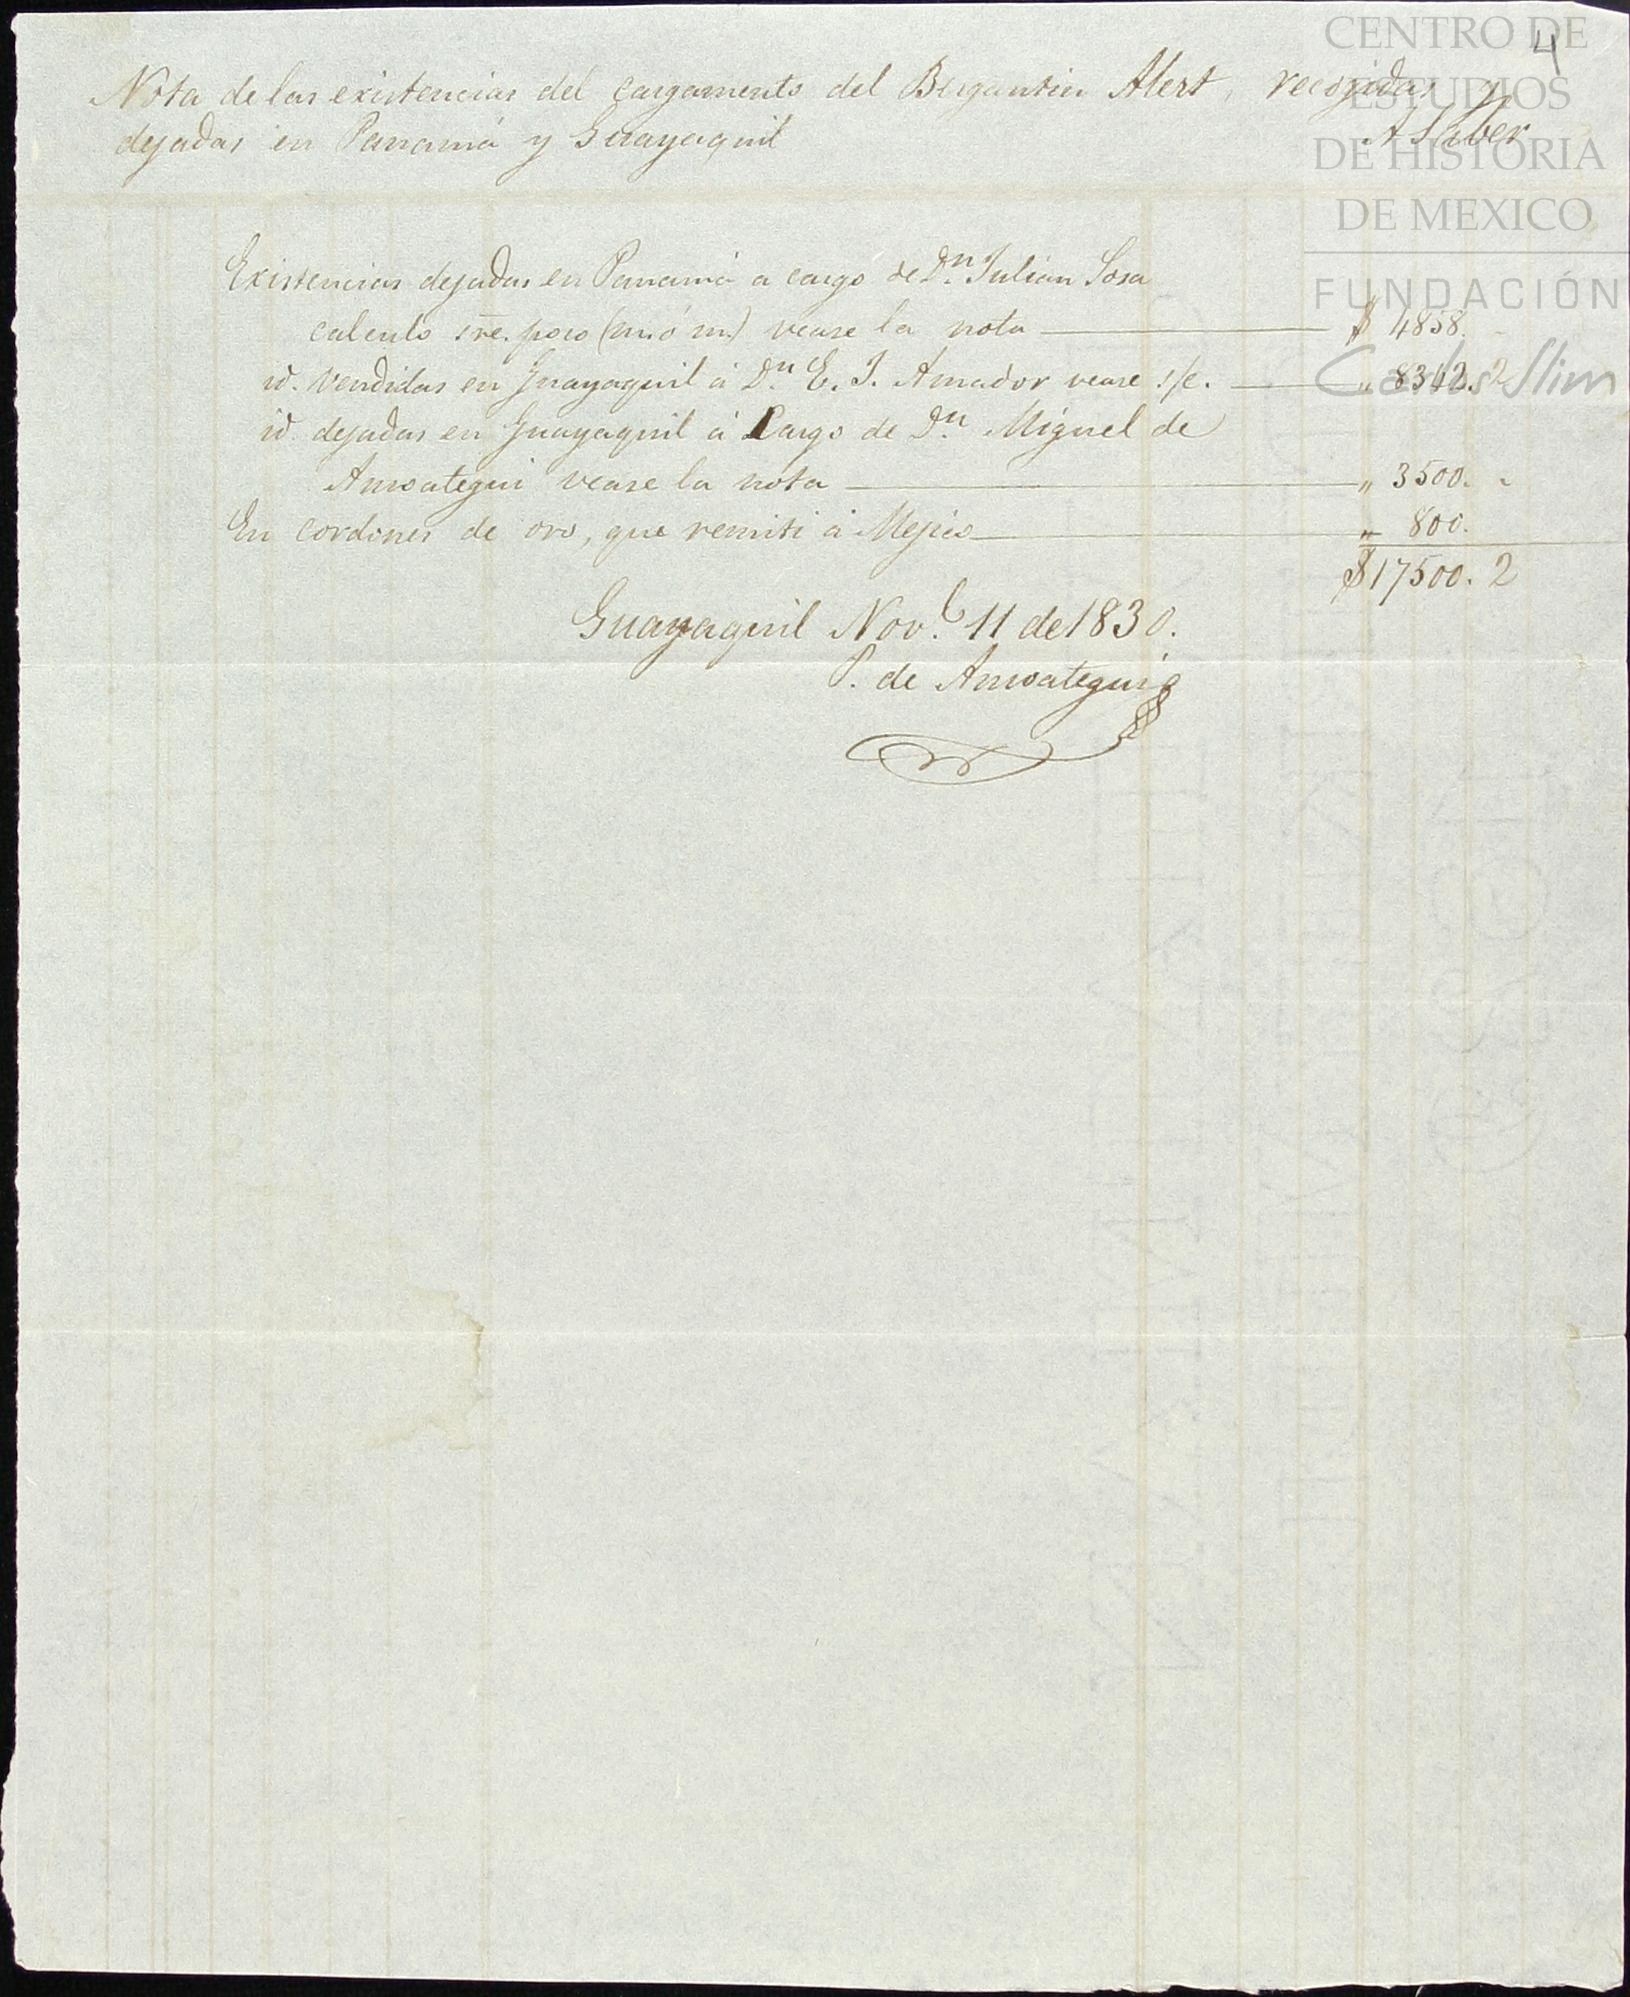 4
Nota de las existencias del cargamento del Bergantin Alert, recojidas y
dejadas en Panamá y Guayaquil
A Saber
Existencias dejadas en Panamá a cargo de Dn. Julian Sosa
calculo sre. poco (m. ó m.) vease la nota $ 4858. -
id. vendidas en Guayaquil á Dn. E. J. Amador vease s/c. " 8342. 2
id. dejadas en Guayaquil á Cargo de Dn. Miguel de
Amoategui vease la nota " 3500. -
En cordones de oro, que remiti á Mejico " 800.
$ 17500. 2
Guayaquil Novb. 11 de 1830.
P. de Amoategui
CENTRO DE
ESTUDIOS
DE HISTORIA
DE MEXICO
FUNDACIÓN
Carlos Slim